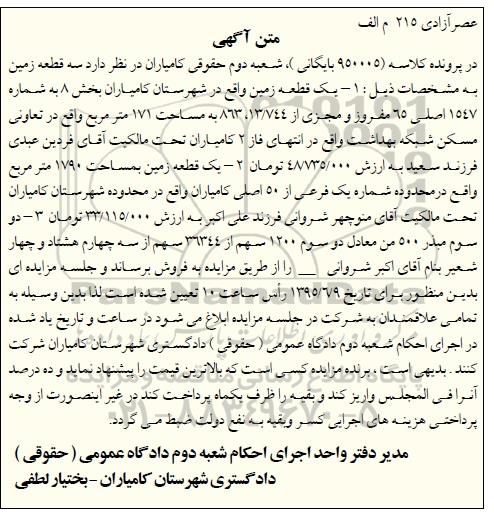 عصرآزادی ۲۱۵ م الف
متن آگهی
در پرونده کلاسه (۹۵۰۰۰۵ بایگانی )، شعبه دوم حقوقی کامیاران در نظر دارد سه قطعه زمین
به مشخصات ذیل : ۱ - یک قطعه زمین واقع در شهرستان کامیاران بخش ۸ به شماره
۱۵۴۷ اصلی ۶۵ مفروز و مجزی از ۸۶۳،۱۳/۷۴۴ به مساحت ۱۷۱ متر مربع واقع در تعاونی
مسکن شبکه بهداشت واقع در انتهای فاز ۲ کامیاران تحت مالکیت آقای فردین عبدی
فرزند سعید به ارزش ۴۸۷۳۵/۰۰۰ تومان ۲ - یک قطعه زمین بمساحت ۱۷۹۰ متر مربع
واقع درمحدوده شماره یک فرعی از ۵۰ اصلی کامیاران واقع در محدوده شهرستان کامیاران
تحت مالکیت آقای منوچهر شروانی فرزند علی اکبر به ارزش ۳۳/۱۱۵/۰۰۰ تومان ۳ - دو
سوم مبذر ۵۰۰ من معادل دو سوم ۱۲۰۰ سهم از ۳۶۳۴۴ سهم از سه چهارم هشتاد و چهار
شعیر بنام آقای اکبر شروانی __ را از طریق مزایده به فروش برساند و جلسه مزایده ای
بدین منظور برای تاریخ ۱۳۹۵/۶/۹ رأس ساعت ۱۰ تعیین شده است لذا بدین وسیله به
تمامی علاقمندان به شرکت در جلسه مزایده ابلاغ می شود در ساعت و تاریخ یاد شده
در اجرای احکام شعبه دوم دادگاه عمومی ( حقوقی ) دادگستری شهرستان کامیاران شرکت
کنند . بدیهی است ، برنده مزایده کسی است که بالاترین قیمت را پیشنهاد نماید و ده درصد
آنرا فی المجلس واریز کند و بقیه را ظرف یکماه پرداخت کند در غیر اینصورت از وجه
پرداختی هزینه های اجرایی کسر وبقیه به نفع دولت ضبط می گردد.
مدیر دفتر واحد اجرای احکام شعبه دوم دادگاه عمومی ( حقوقی )
دادگستری شهرستان کامیاران - بختیار لطفی